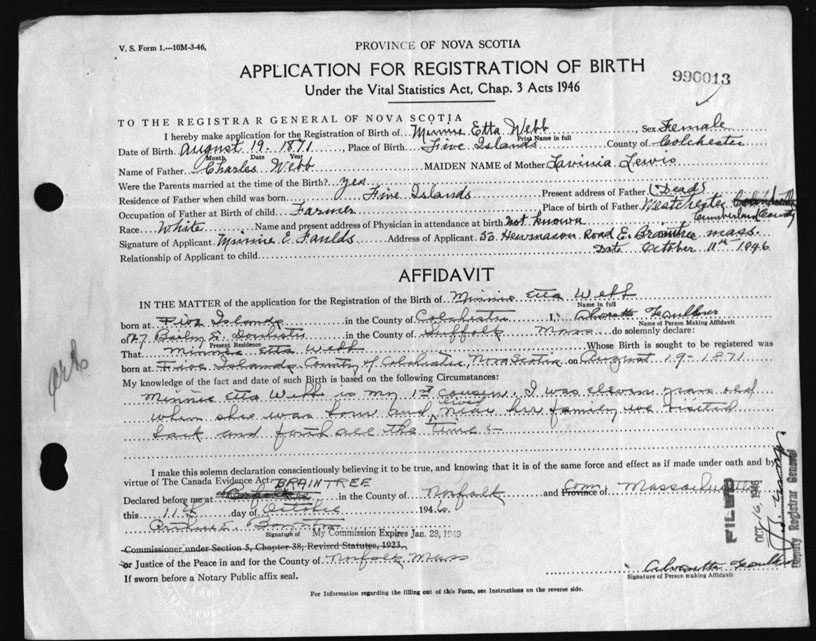 V. S. Form 1.—10M-3-46.
PROVINCE OF NOVA SCOTIA
APPLICATION FOR REGISTRATION OF BIRTH
990013
Under the Vital Statistics Act, Chap. 3 Acts 1946
TO THE REGISTRAR GENERAL OF NOVA SCOTIA
I hereby make application for the Registration of Birth of Minnie Etta Webb Sex Female
Print Name in full
Date of Birth August 19. 1871, Place of Birth Five Islands County of Colchester
Month Date Year
Name of Father Charles Webb MAIDEN NAME of Mother Lavinia Lewis
Were the Parents married at the time of Birth? yes
Residence of Father when child was born Five Islands Present address of Father (Dead)
Occupation of Father at Birth of child Farmer Place of birth of Father Westchester
Cumberland County
Race White Name and present address of Physician in attendance at birth not known
Signature of Applicant Minnie E. Faulds Address of Applicant 53 Road E. Braintree Mass.
Relationship of Applicant to child Date October 11th 1946
AFFIDAVIT
IN THE MATTER of the application for the Registration of Birth of Minnie Etta Webb
Name in full
born at Five Islands in the County of Colchester I, Faulkner
Name of Person Making Affidavit
of 27 in the County of Suffolk Mass do solemnly declare:
Present Residence
That Minnie Etta Webb Whose Birth is sought to be registered was
born at Five Islands County of Colchester, Nova Scotia on August 19-1871
My knowledge of the fact and date of such Birth is based on the following Circumstances:
Minnie Etta Webb is my 1st Cousin. I was eleven years old
when she was born and lived near her family we visited
back and forth all the time
I make this solemn declaration conscientiously believing it to be true, and knowing that it is of the same force and effect as if made under oath and by
virtue of The Canada Evidence Act. BRAINTREE
Declared before me at in the County of Norfolk and Com. Province of Massachusetts
this 11th day of October 1946
Signature of My Commission Expires Jan. 28, 1949
Commissioner under Section 5, Chapter 38, Revised Statutes, 1923,
or Justice of the Peace in and for the County of Norfolk, Mass
If sworn before a Notary Public affix seal.
Signature of Person making Affidavit
For Information regarding the filling out of this Form, see Instructions on the reverse side.
FILED
OCT 16 1946
Deputy Registrar General